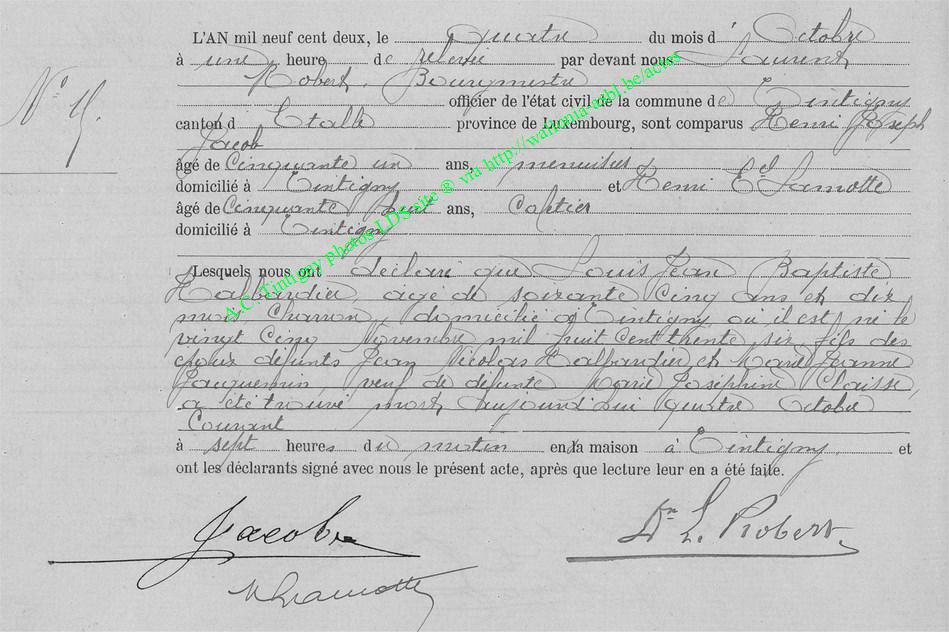 L'AN mil neuf cent deux, le Quatre du mois d' Octobre
à une heure de relevée par devant nous Laurent
Robert Bourgmestre
officier de l'état civil de la commune de Tintigny
N° 15.
canton d' Etalle province de Luxembourg, sont comparus Henri Joseph
Jacob
âgé de Cinquante un ans, menuisier
domicilié à Tintigny et Henri Lamotte
âgé de Cinquante huit ans,
domicilié à Tintigny
Lesquels nous ont déclaré que Louis Jean Baptiste
Halbardier, agé de soixante Cinq ans et dix
mois Charron, domicilié à Tintigny où il est né le
vingt Cinq Novembre mil huit Cent trente six fils des
époux défunts Jean Nicolas Halbardier et Marie Jeanne
Jacquemin, veuf de défunte Marie Joséphine Claisse,
a été trouvé mort aujourd'hui quatre Octobre
Courant
à sept heures du matin en la maison à Tintigny, et
ont les déclarants signé avec nous le présent acte, après que lecture leur en a été faite.
Jacob
Dr L. Robert.
Lamotte
A.C. Tintigny photos LDS site ® via http://wallonia-asbl.be/actes